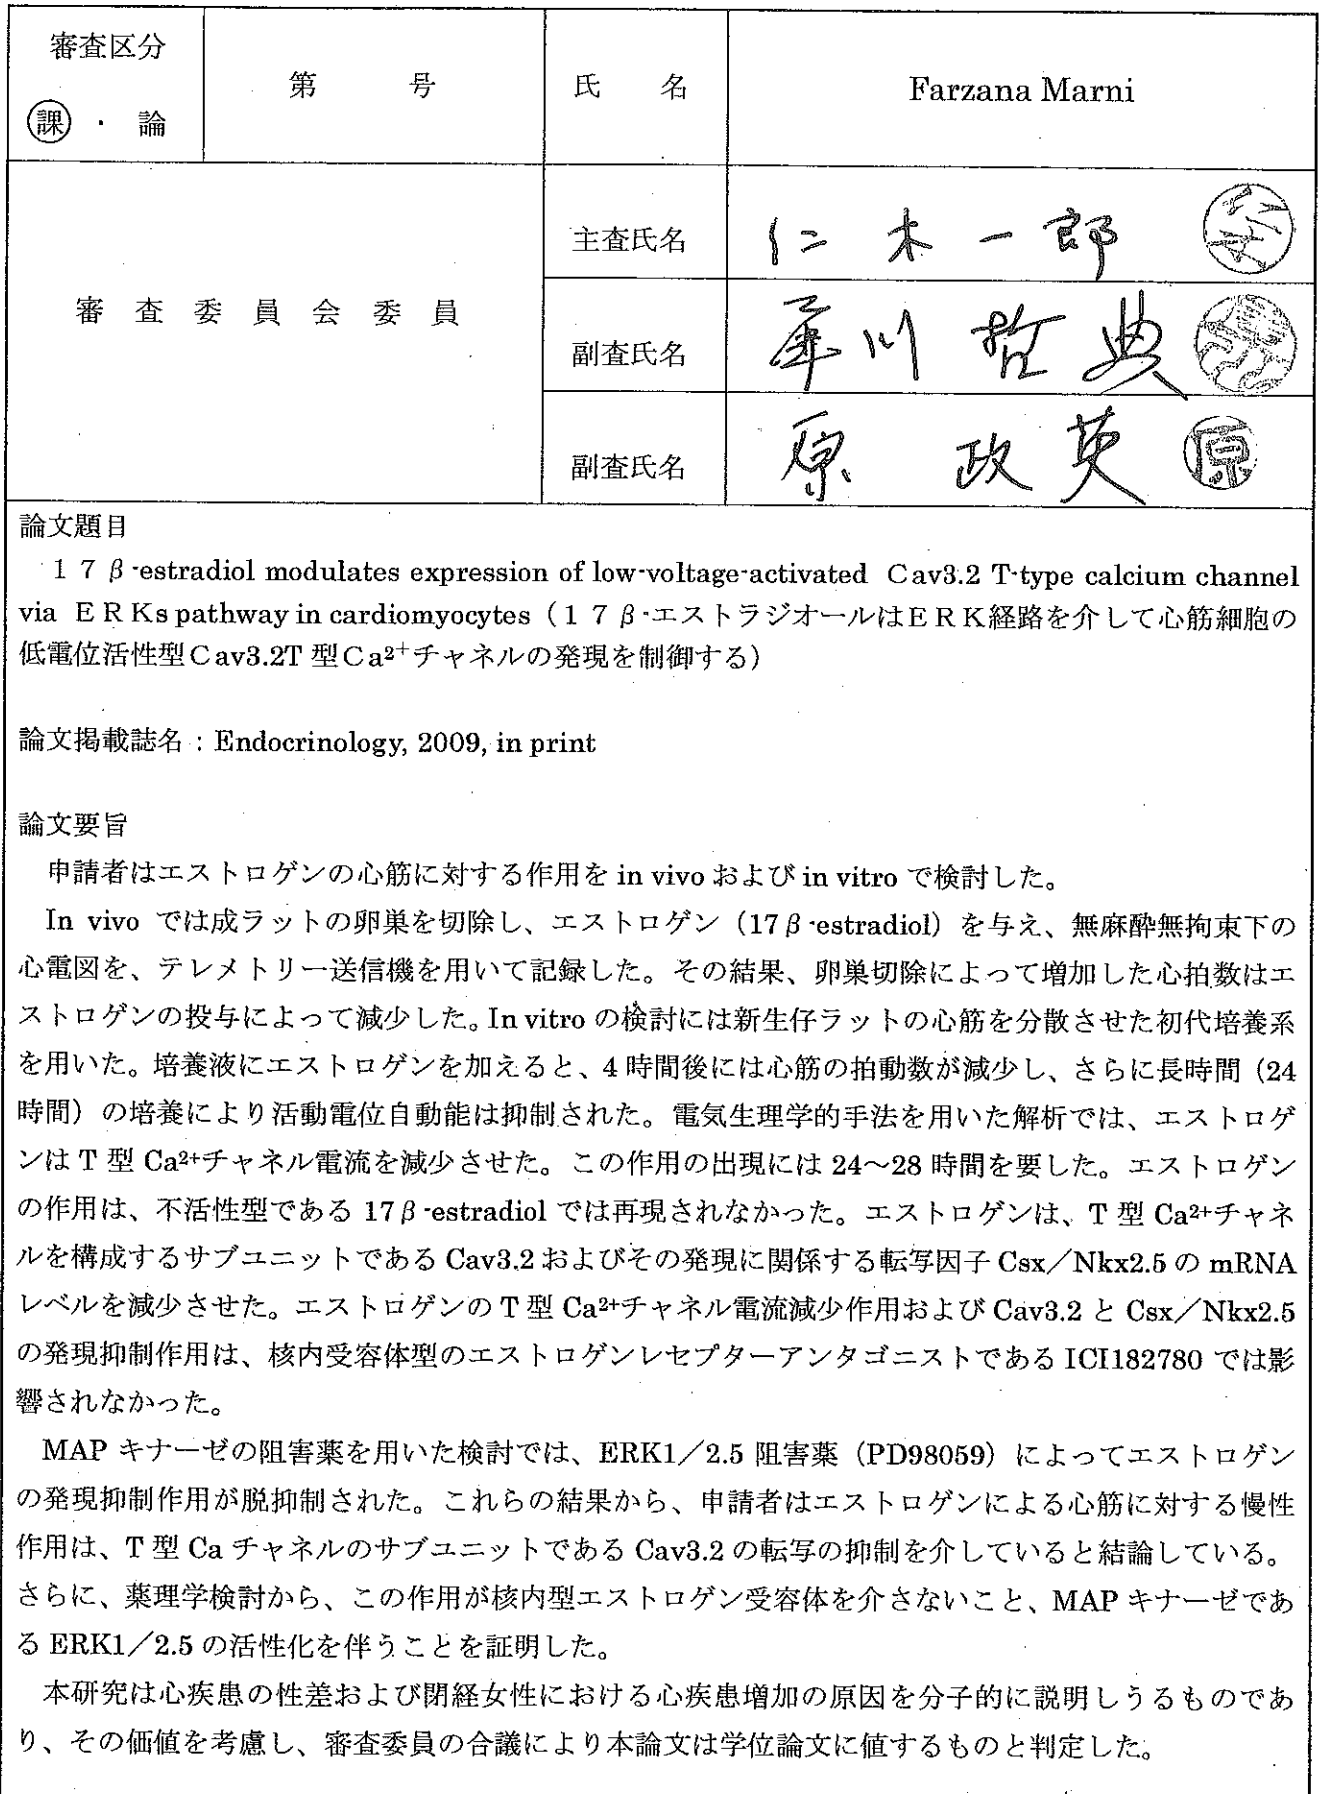 審査区分
課 ・ 論
第 号
氏 名
Farzana Marni
審 査 委 員 会 委 員
主査氏名
仁木一郎
副査氏名
犀川哲典
副査氏名
原 政英
原
論文題目
１７β-estradiol modulates expression of low-voltage-activated Ｃav3.2 T-type calcium channel
via ＥＲＫs pathway in cardiomyocytes（１７β-エストラジオールはＥＲＫ経路を介して心筋細胞の
低電位活性型Ｃav3.2T 型Ｃa²⁺チャネルの発現を制御する）
論文掲載誌名：Endocrinology, 2009, in print
論文要旨
申請者はエストロゲンの心筋に対する作用を in vivo および in vitro で検討した。
In vivo では成ラットの卵巣を切除し、エストロゲン（17β-estradiol）を与え、無麻酔無拘束下の
心電図を、テレメトリー送信機を用いて記録した。その結果、卵巣切除によって増加した心拍数はエ
ストロゲンの投与によって減少した。In vitro の検討には新生仔ラットの心筋を分散させた初代培養系
を用いた。培養液にエストロゲンを加えると、4 時間後には心筋の拍動数が減少し、さらに長時間（24
時間）の培養により活動電位自動能は抑制された。電気生理学的手法を用いた解析では、エストロゲ
ンは T 型 Ca²⁺チャネル電流を減少させた。この作用の出現には 24～28 時間を要した。エストロゲン
の作用は、不活性型である 17β-estradiol では再現されなかった。エストロゲンは、T 型 Ca²⁺チャネ
ルを構成するサブユニットである Cav3.2 およびその発現に関係する転写因子 Csx／Nkx2.5 の mRNA
レベルを減少させた。エストロゲンの T 型 Ca²⁺チャネル電流減少作用および Cav3.2 と Csx／Nkx2.5
の発現抑制作用は、核内受容体型のエストロゲンレセプターアンタゴニストである ICI182780 では影
響されなかった。
MAP キナーゼの阻害薬を用いた検討では、ERK1／2.5 阻害薬（PD98059）によってエストロゲン
の発現抑制作用が脱抑制された。これらの結果から、申請者はエストロゲンによる心筋に対する慢性
作用は、T 型 Ca チャネルのサブユニットである Cav3.2 の転写の抑制を介していると結論している。
さらに、薬理学検討から、この作用が核内型エストロゲン受容体を介さないこと、MAP キナーゼであ
る ERK1／2.5 の活性化を伴うことを証明した。
本研究は心疾患の性差および閉経女性における心疾患増加の原因を分子的に説明しうるものであ
り、その価値を考慮し、審査委員の合議により本論文は学位論文に値するものと判定した。